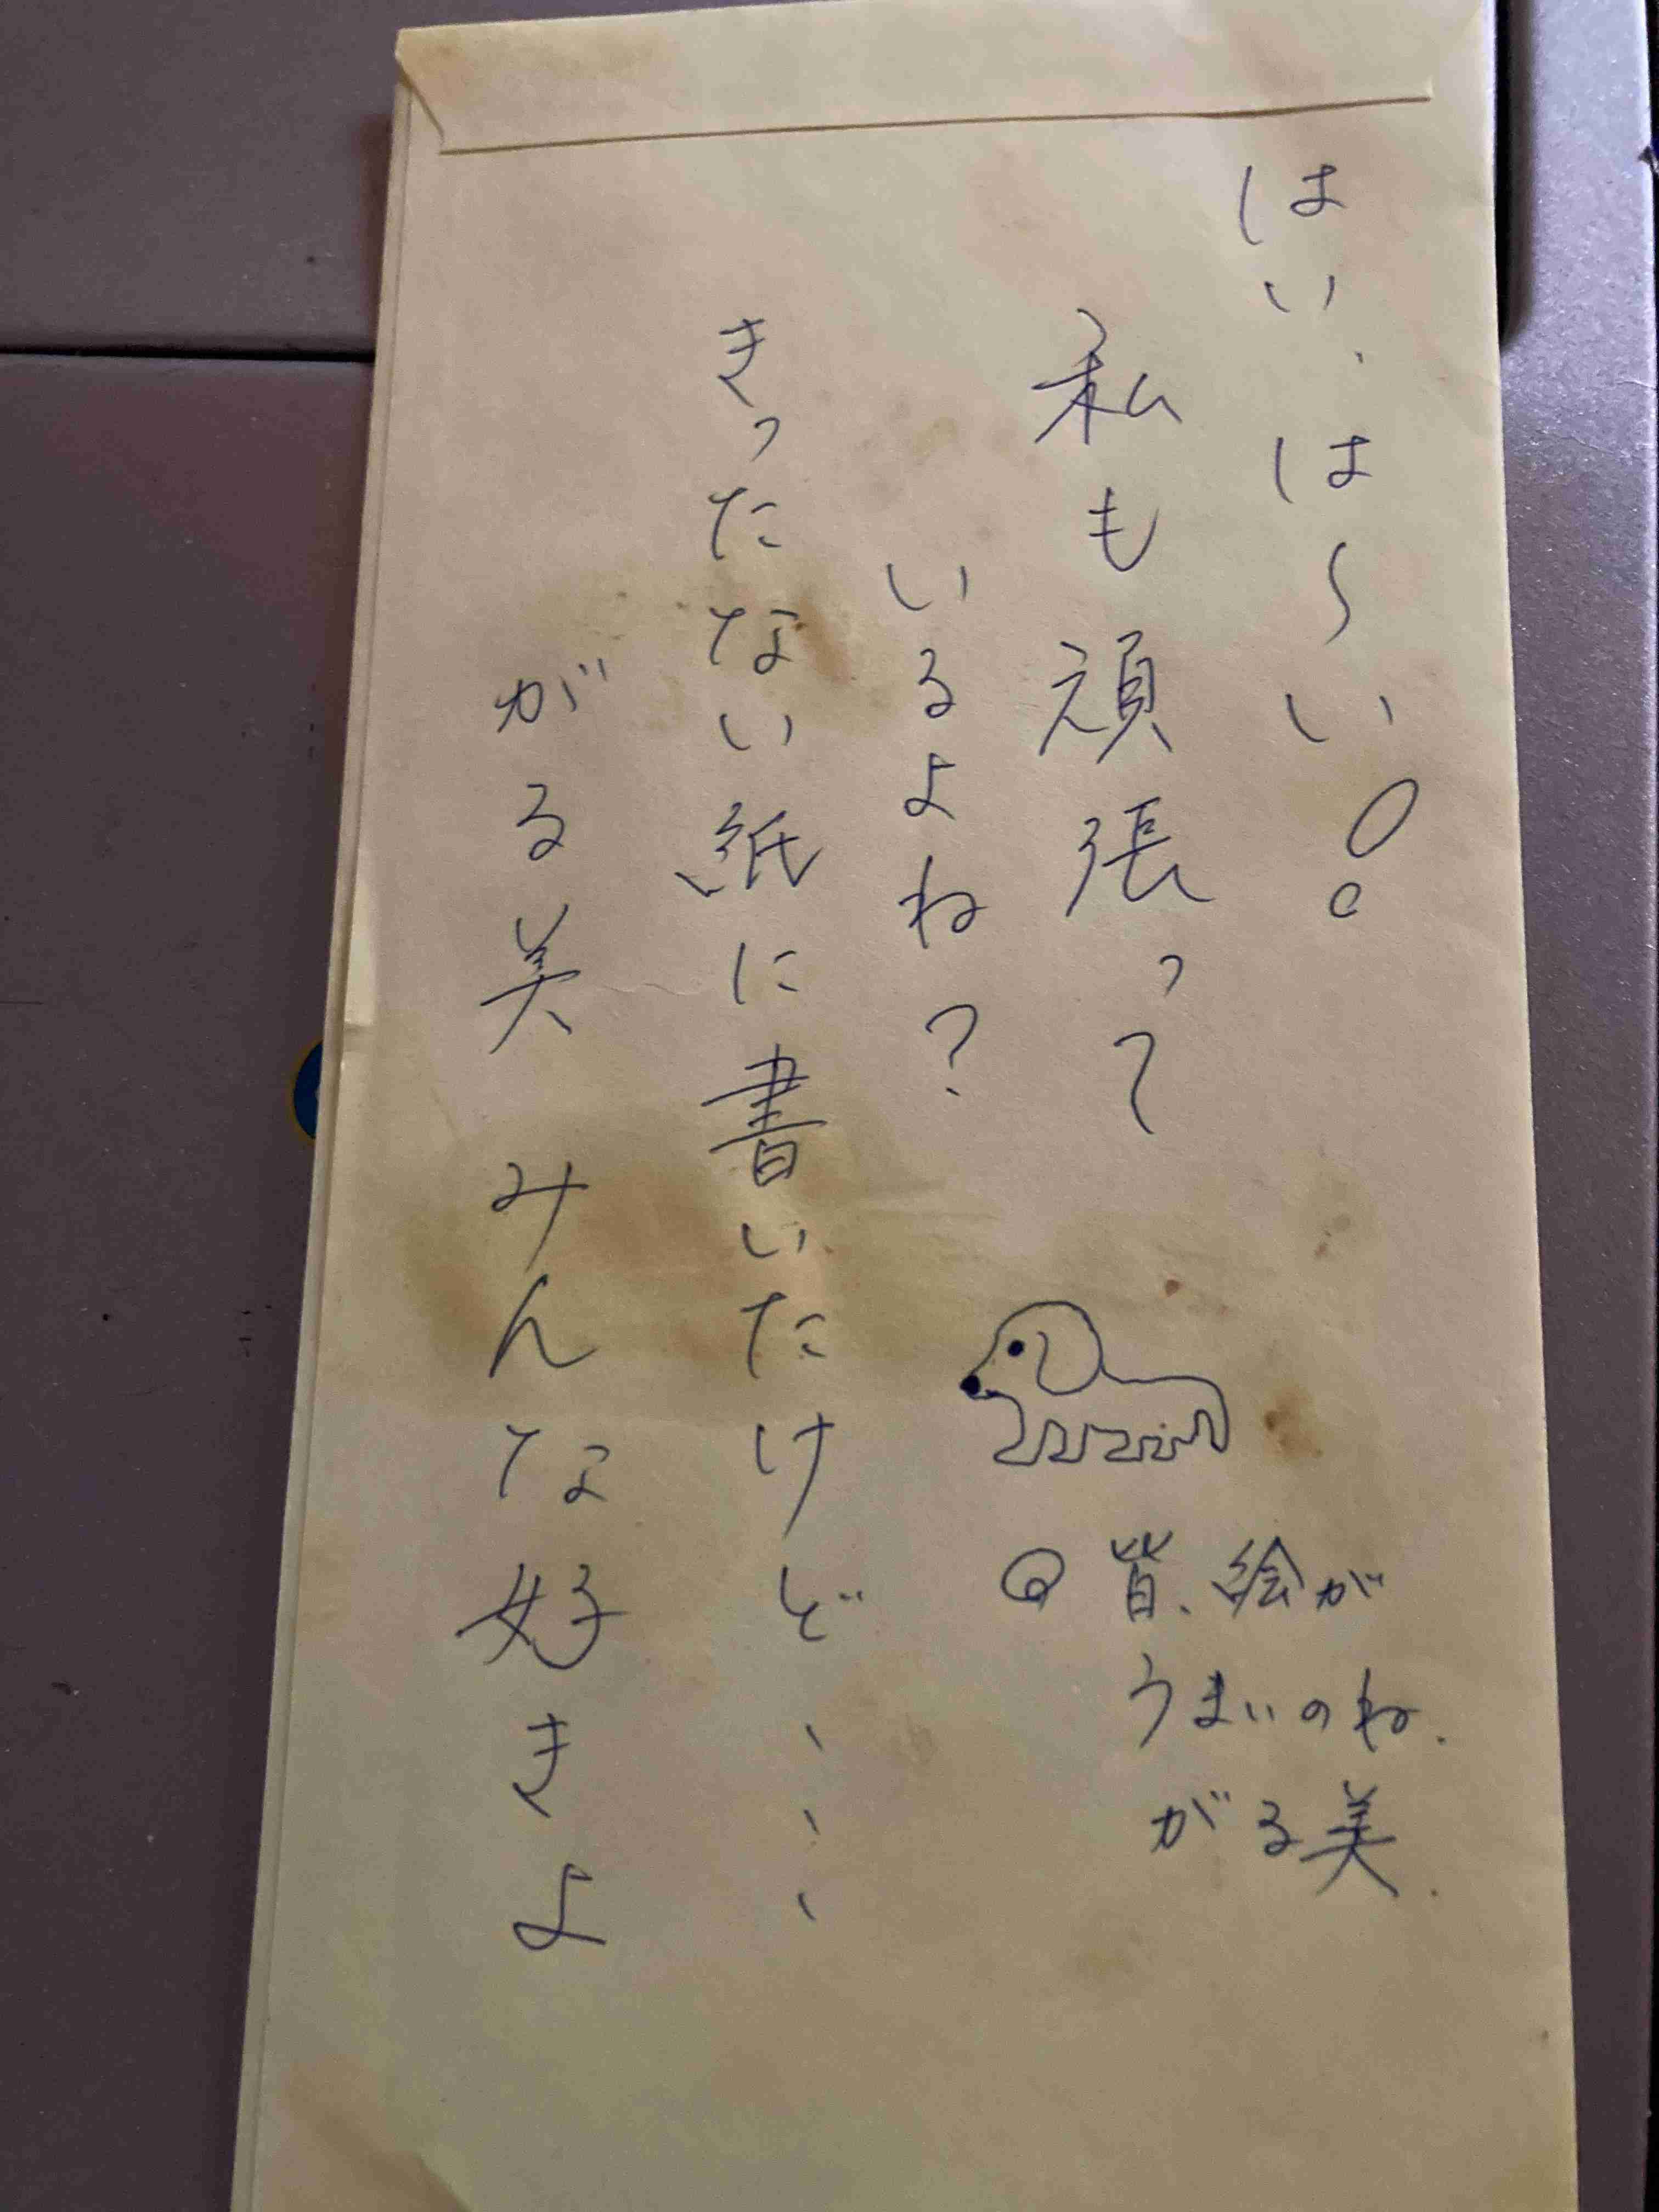 はい、は〜い!
私も頑張って
いるよね?
きったない紙に書いたけど、、、
がる美 みんな好きよ
絵が
うまいのね.
がる美.